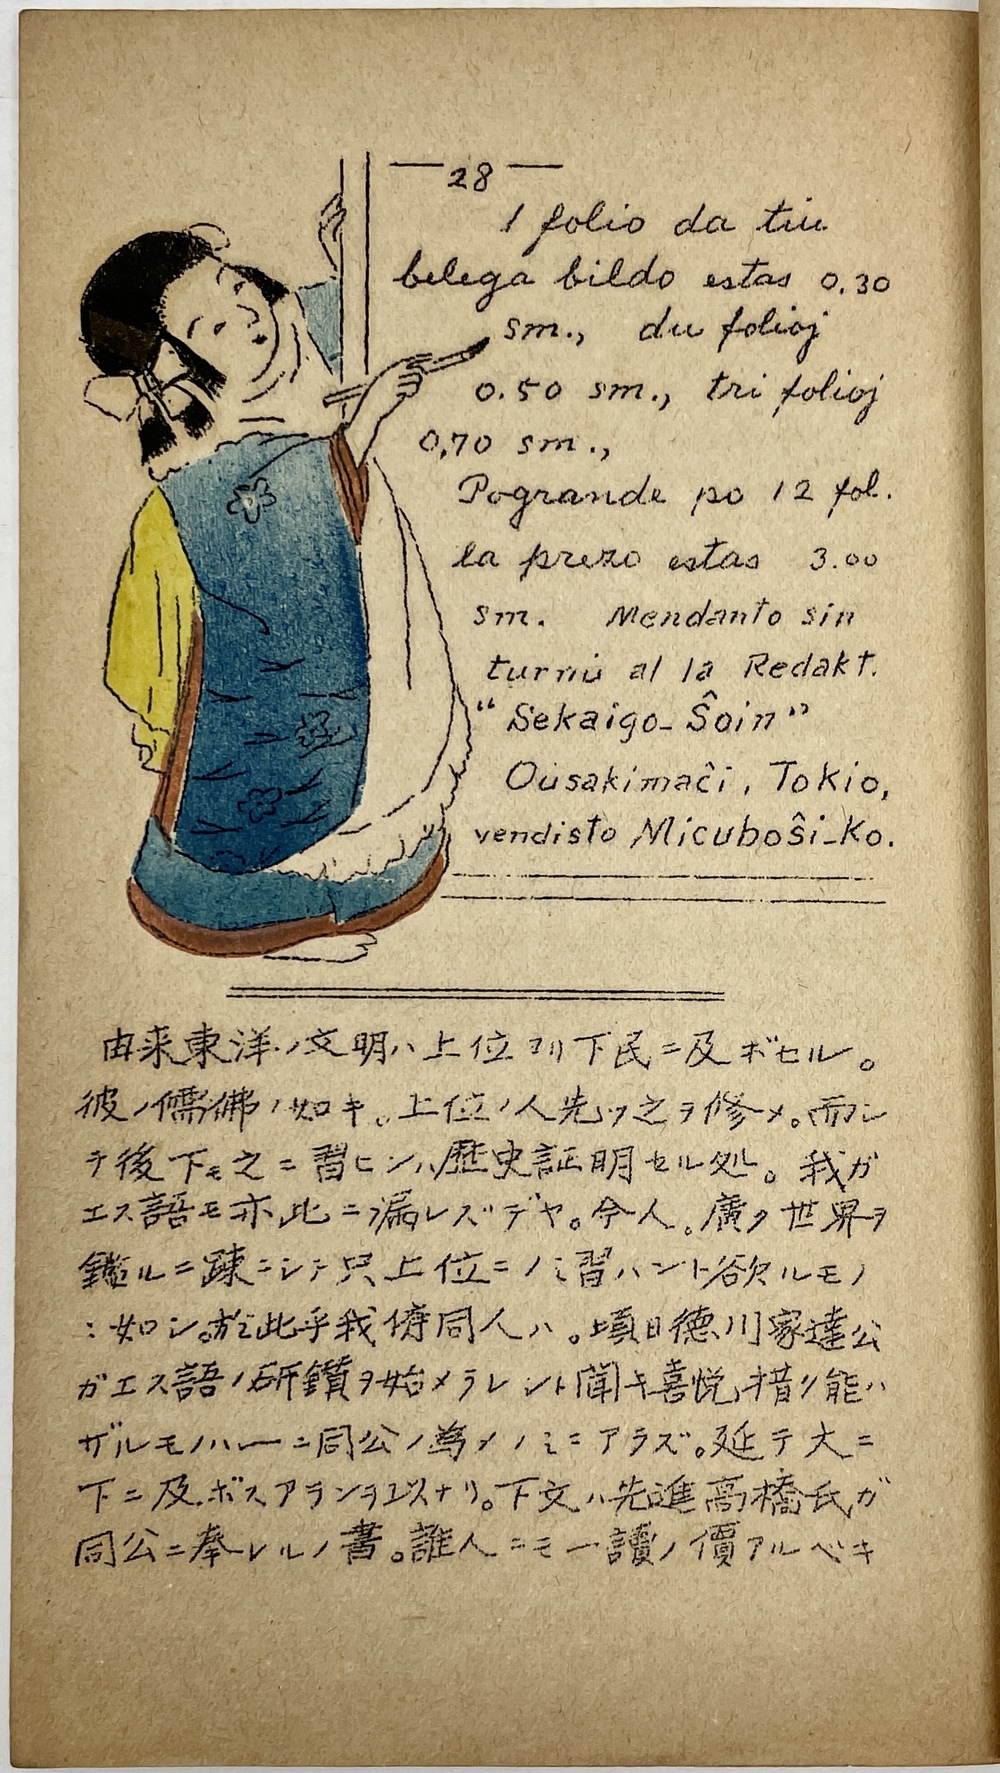 28
1 folio da tiu
belega bildo estas 0.30
sm., du folioj
0.50 sm., tri folioj
0,70 sm.,
Pogrande po 12 fol.
la prezo estas 3.00
sm. Mendanto sin
turnu al la Redakt.
"Sekaigo-Ŝoin"
Ousakimaĉi, Tokio,
vendisto Micuboŝi-Ko.
由来東洋ノ文明ハ上位ヨリ下民ニ及ボセル。
彼ノ儒佛ノ如キ。上位ノ人先ヅ之ヲ修メ。而シ
テ後下モ之ニ習ヒシハ歴史証明セル処。我ガ
エス語モ亦此ニ漏レズデヤ。今人。廣ク世界ヲ
鑑ルニ疎ニシテ只上位ニノミ習ハント欲ルモノ
ニ如シ。於之此乎我儕同人ハ。頃日徳川家達公
ガエス語ノ研鑚ヲ始メラレシト聞キ喜悦措ク能ハ
ザルモノハ一ニ同公ノ為メノミニアラズ。延テ大ニ
下ニ及ボスアラン
ナリ。下文ハ先進高橋氏ガ
同公ニ奉レルノ書。誰人ニモ一讀ノ價アルベキ